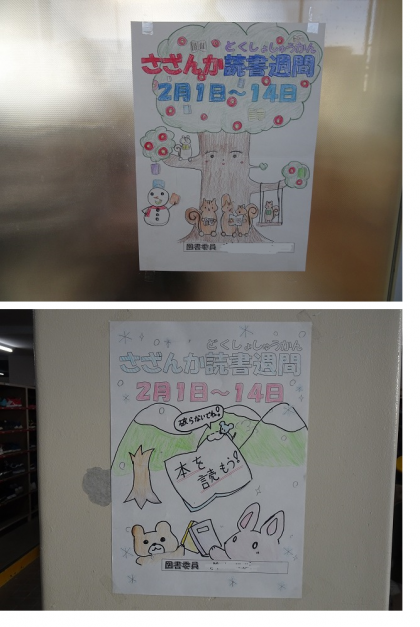 どくしょしゅうかん
さざんか読書週間
2月1日～14日
図書委員
どくしょしゅうかん
さざんか読書週間
2月1日～14日
破らないでね!
本を
読もう!
図書委員